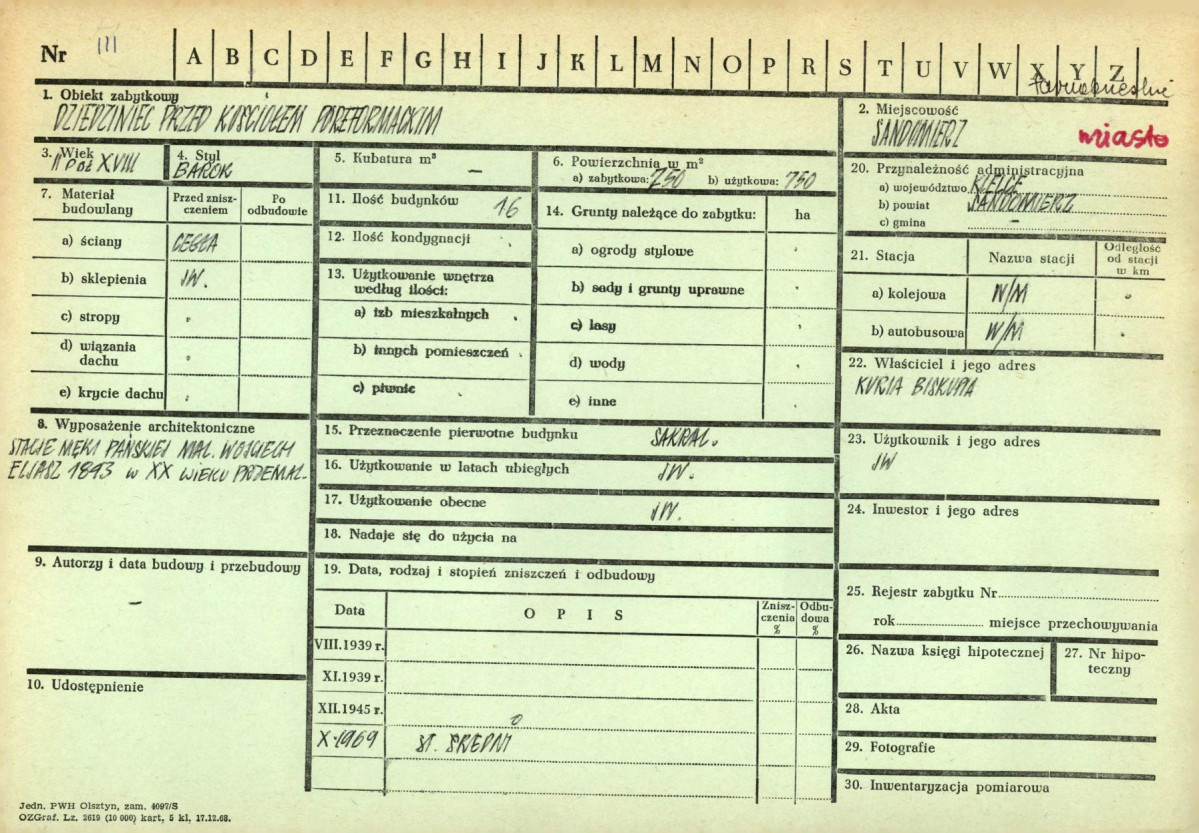 Nr III A B C D E F G H I J K L M N O P R S T U V W X Y Z
1. Obiekt zabytkowy
DZIEDZINIEC PRZED KOŚCIOŁEM POREFORMACKIM
2. Miejscowość
SANDOMIERZ miasto
3. Wiek
II POŁ XVIII
4. Styl
BAROK
5. Kubatura m³
–
6. Powierzchnia w m²
a) zabytkowa: 750 b) użytkowa: 750
20. Przynależność administracyjna
a) województwo KIELCE
b) powiat SANDOMIERZ
c) gmina –
7. Materiał budowlany
Przed znisz-
czeniem
Po
odbudowie
a) ściany CEGŁA
b) sklepienia JW.
c) stropy
d) wiązania
dachu
e) krycie dachu
11. Ilość budynków 16
12. Ilość kondygnacji
13. Użytkowanie wnętrza
według ilości:
a) izb mieszkalnych
b) innych pomieszczeń
c) piwnic
14. Grunty należące do zabytku: ha
a) ogrody stylowe
b) sady i grunty uprawne
c) lasy
d) wody
e) inne
21. Stacja Nazwa stacji
Odległość
od stacji
w km
a) kolejowa W/M
b) autobusowa W/M
22. Właściciel i jego adres
KURIA BISKUPIA
8. Wyposażenie architektoniczne
STACJE MĘKI PAŃSKIEJ MAL. WOJCIECH
ELJASZ 1843 W XX WIEKU PRZEMAL.
15. Przeznaczenie pierwotne budynku SAKRAL.
16. Użytkowanie w latach ubiegłych JW.
17. Użytkowanie obecne JW.
18. Nadaje się do użycia na
23. Użytkownik i jego adres
JW
24. Inwestor i jego adres
9. Autorzy i data budowy i przebudowy
–
10. Udostępnienie
19. Data, rodzaj i stopień zniszczeń i odbudowy
Data OPIS
Znisz-
czenia
%
Odbu-
dowa
%
VIII.1939 r.
XI.1939 r.
XII.1945 r.
X.1969 ST. ŚREDNI
25. Rejestr zabytku Nr
rok miejsce przechowywania
26. Nazwa księgi hipotecznej
27. Nr hipo-
teczny
28. Akta
29. Fotografie
30. Inwentaryzacja pomiarowa
Jedn. PWH Olsztyn, zam. 4097/S
OZGraf. Lz. 2619 (10 000) kart. 5 kl. 17.12.68.